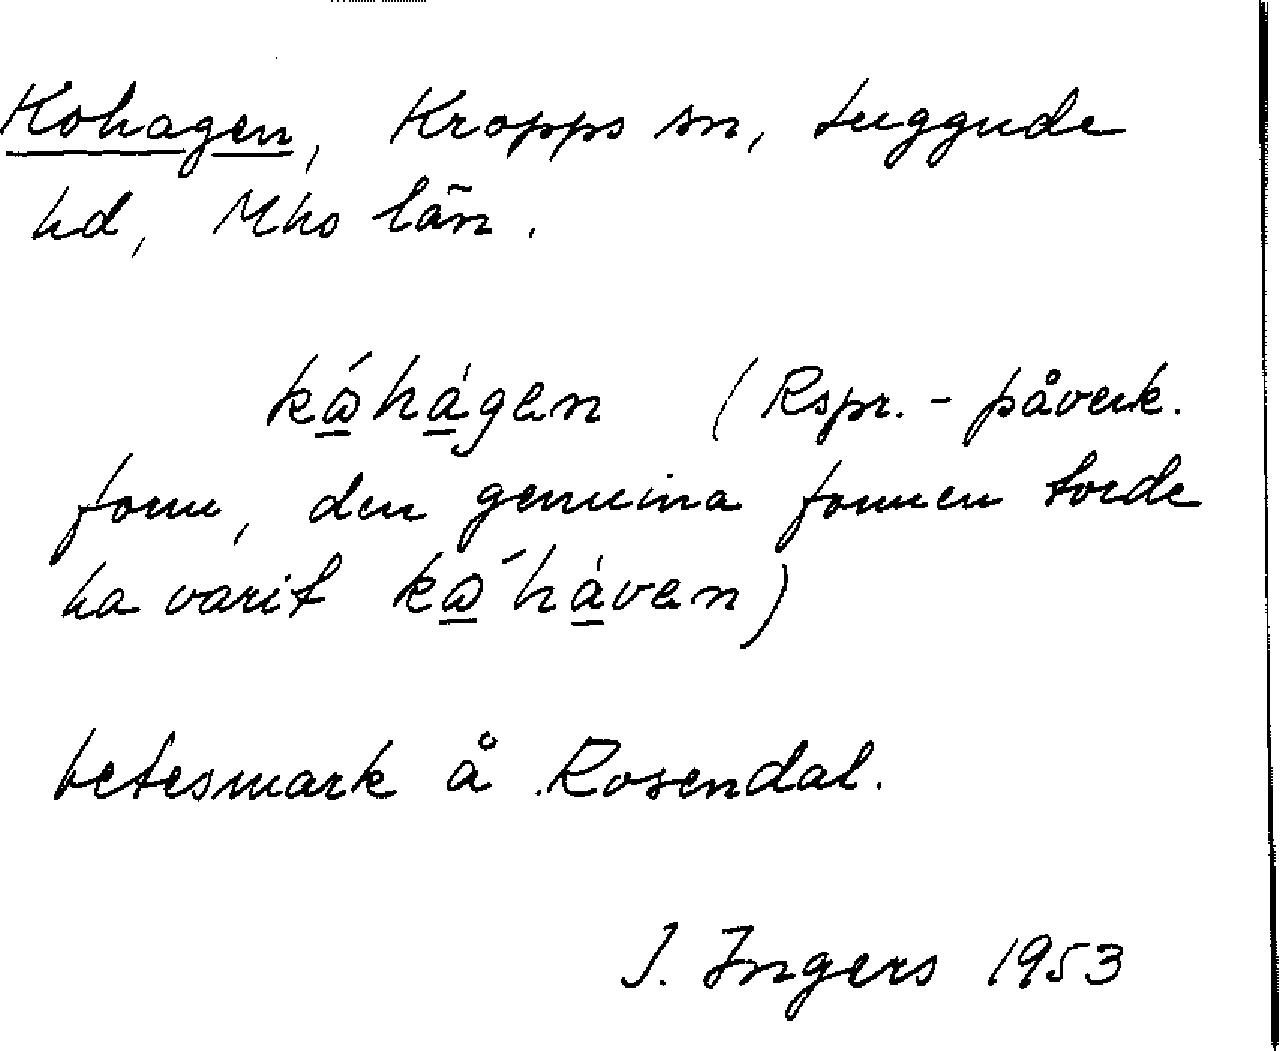 Kohagen, Kropps sn, Luggude
hd, Mho län.
kώ̲hȧ̲gen (Rspr.-påverk.
form, den genuina formen torde
ha varit kώ̲hȧ̲ven)
betesmark å Rosendal.
I. Ingers 1953